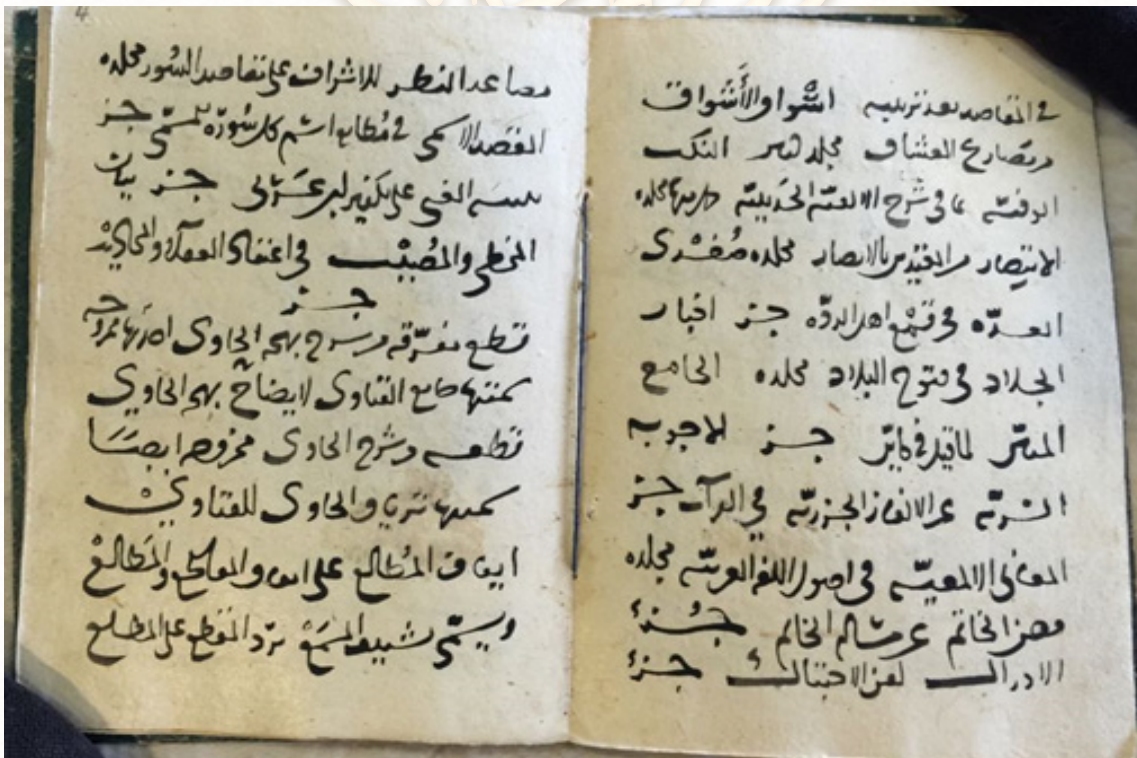 في المقاصد بعد تنزيله اسْواق الأَشواق
من مصارع العشاق مجلد النكت
الوفيه بما في شرح الالفيه الحديثيه مجلده
الانتصار من المعتدي بالابصار مجلده صُغْرى
العدّه في قمع اهل الردّه جز اخبار
الجلاد في فتوح البلاد مجلده الجامع
المبين لما قيل في كاين جز الاجوبه
السريّه عن الالغاز الجزريّه في القرآت جز
المعاني الالمعيّه في اصول اللغه العربيّه مجلده
الخاتم عن الخاتم جُزء
الادراك لفن الاحتباك جزء
4
مصاعد النظر للاشراف على مقاصد السُور مجلده
المقصد الاسمى في مُطابقه اسم كل سُورَة للمسمّى جز
تنبيه الغبي على تكفير ابن عَرَبى جز بيان
المُخطى والمُصِيْب في اعتقاد والمجاذيب
جز
قطع متفرّقه من شرح بهجه الحاوى احدها ممزوجه
سميتها جامع الفتاوى لايضاح بهجه الحاوي
قطعه من شرح الحاوى ممزوجه ايضًا
سميتها ترياق الحاوى للفتاوي
المُطالع على المقاطع والمَطالع
ويُسمّى برد المقطع على المطلع